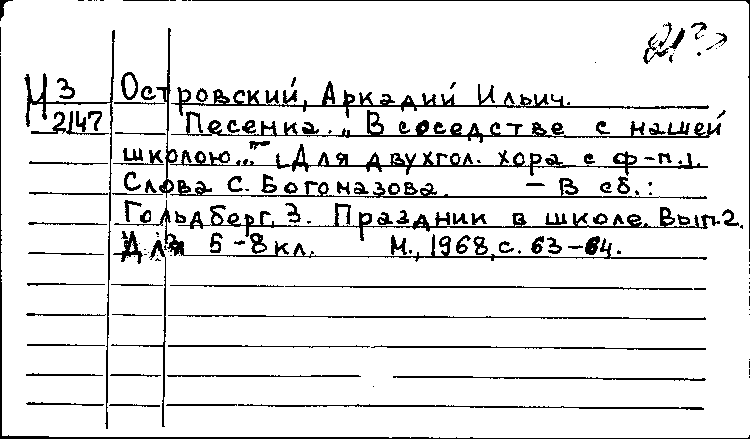 М 3 Островский, Аркадий Ильич.
2/47 Песенка. „В соседстве с нашей
школою..." [Для двухгол. хора с ф-п.].
Слова С. Богомазова. — В сб.:
Гольдберг, З. Праздник в школе. Вып. 2.
Для 5-8 кл. М., 1968, с. 63-64.